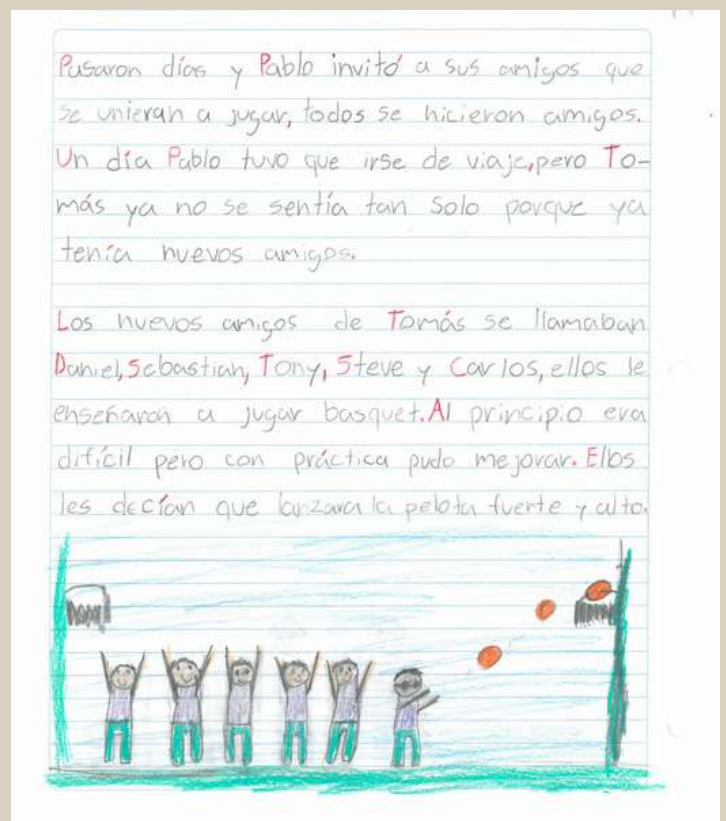 Pasaron días y Pablo invitó a sus amigos que
se unieran a jugar, todos se hicieron amigos.
Un día Pablo tuvo que irse de viaje, pero To-
más ya no se sentía tan solo porque ya
tenía nuevos amigos.
Los nuevos amigos de Tomás se llamaban
Daniel, Sebastian, Tony, Steve y Carlos, ellos le
enseñaron a jugar basquet. Al principio era
difícil pero con práctica pudo mejorar. Ellos
les decían que lanzara la pelota fuerte y alto.